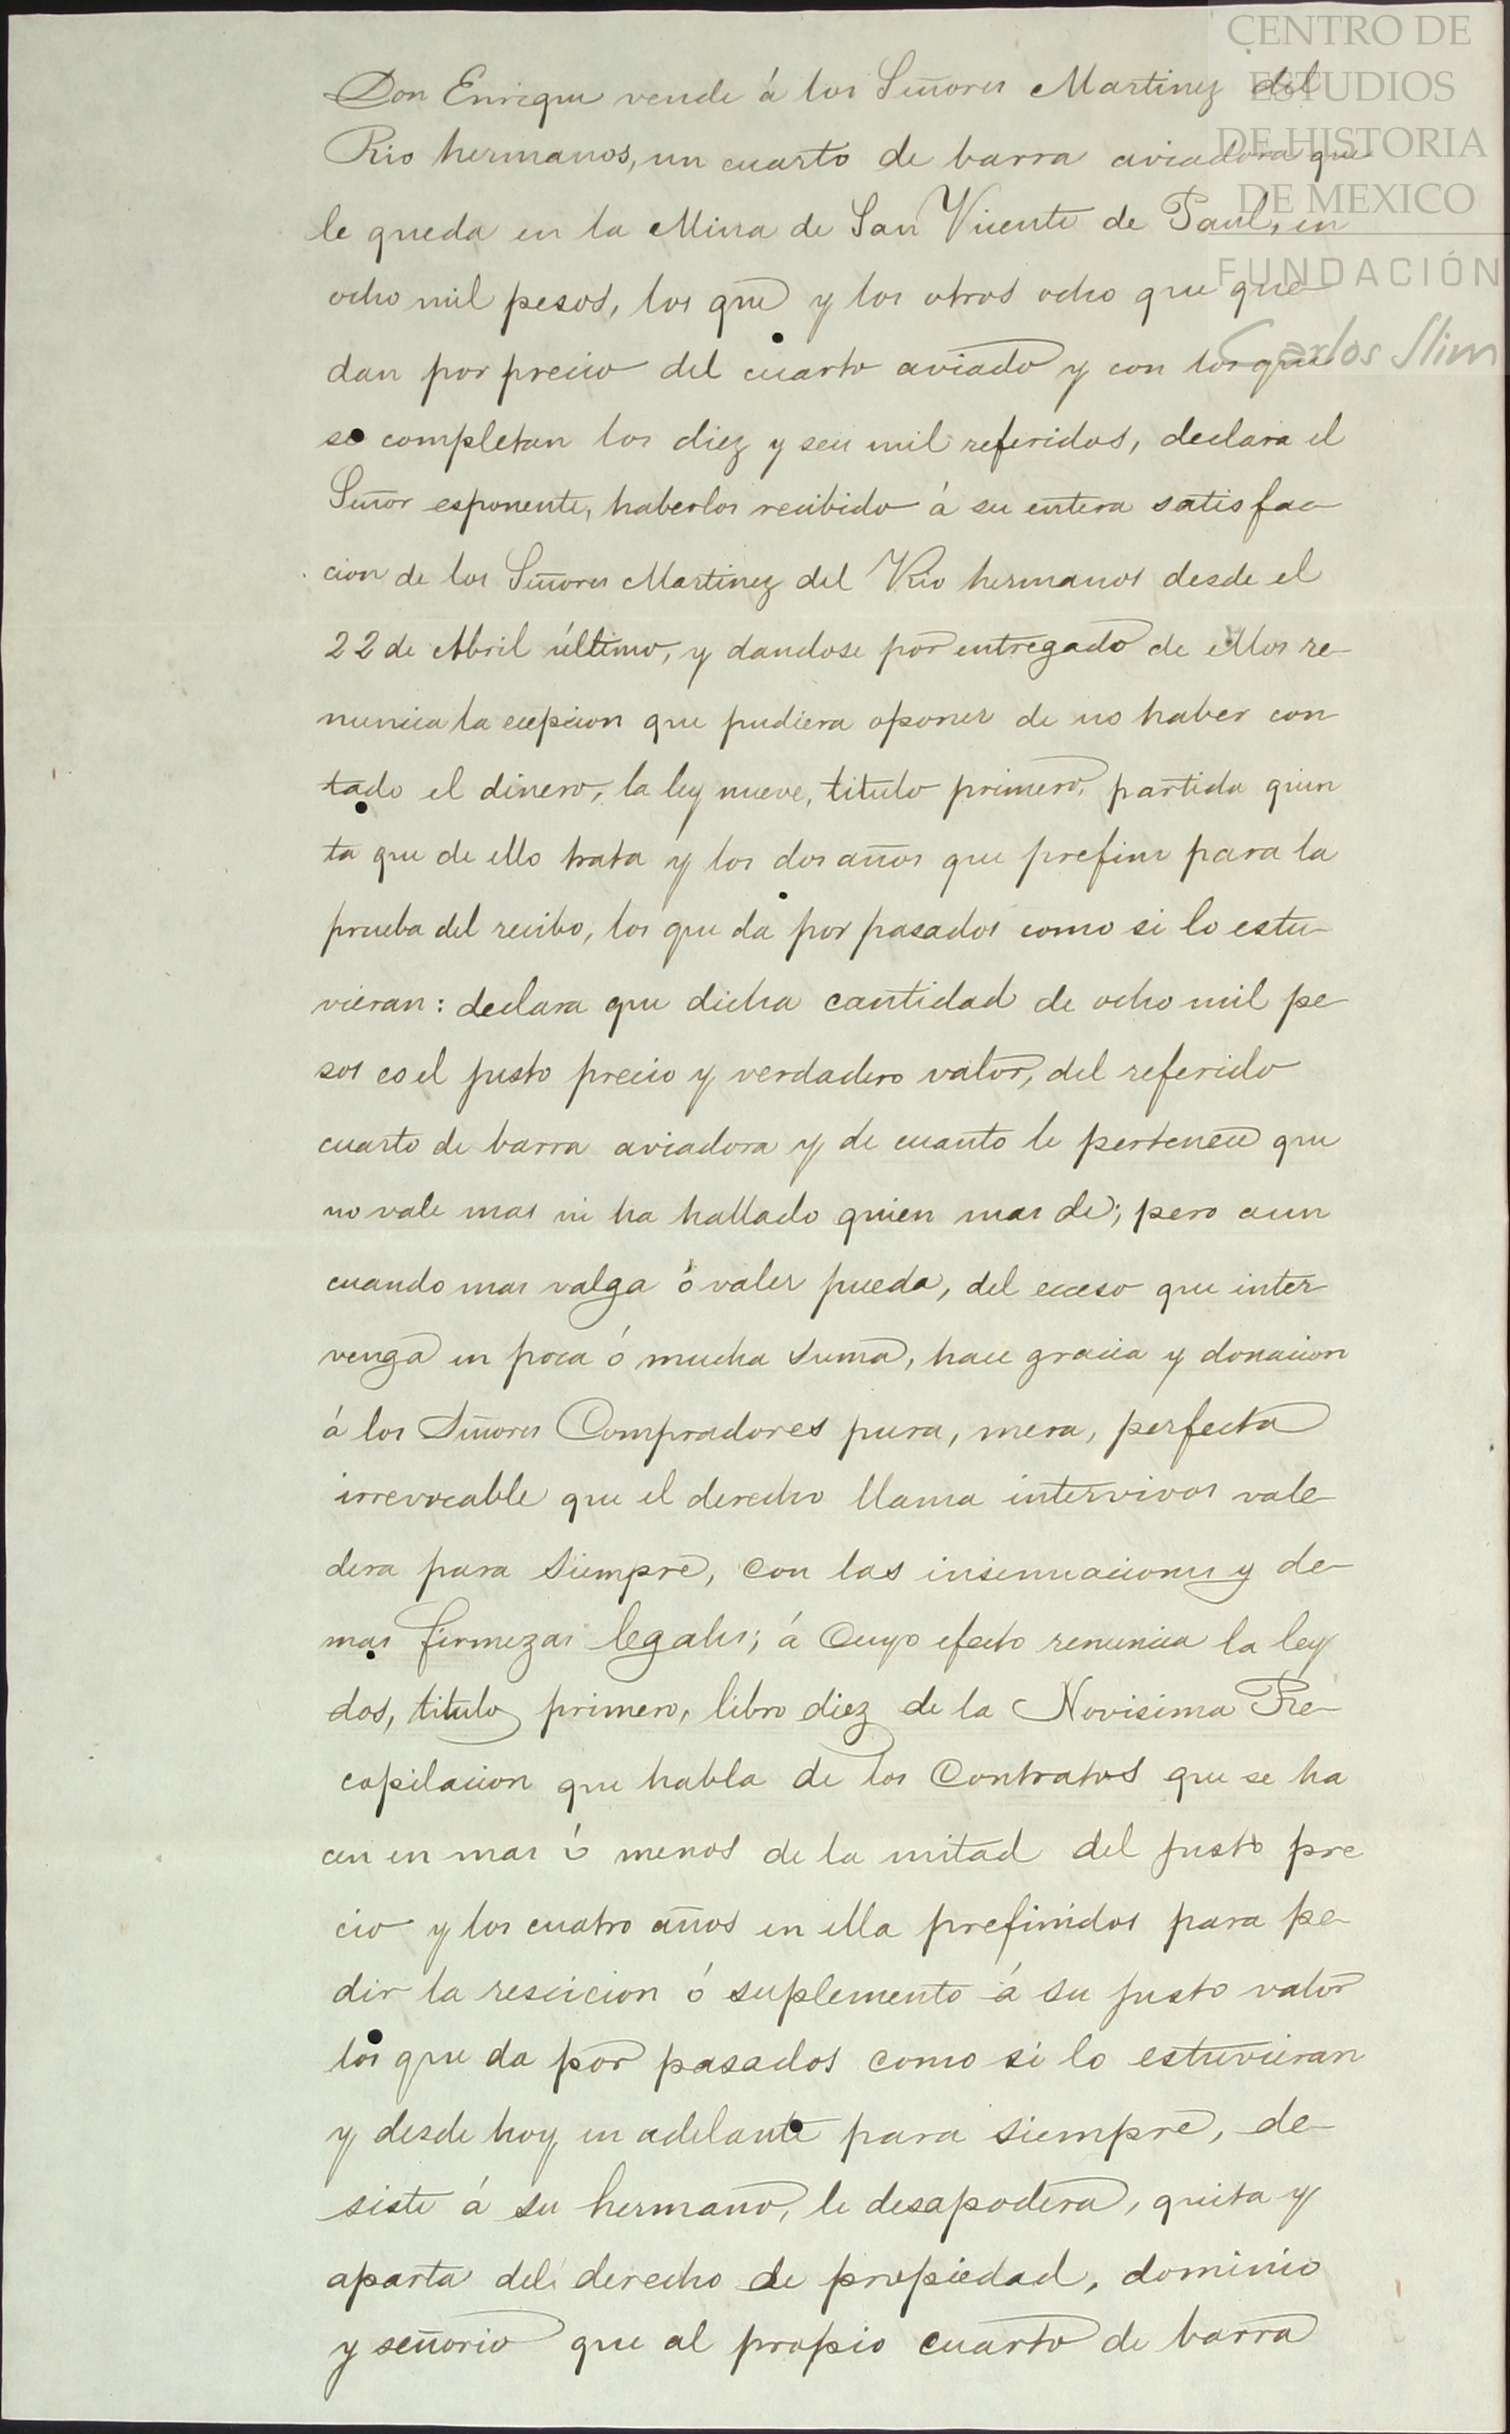 CENTRO DE
ESTUDIOS
DE HISTORIA
DE MEXICO
FUNDACIÓN
Carlos Slim
Don Enrique vende á los Señores Martinez del
Rio hermanos, un cuarto de barra aviadora que
le queda en la Mina de San Vicente de Paul, en
ocho mil pesos, los que y los otros ocho que que
dan por precio del cuarto aviado y con los que
se completan los diez y seis mil referidos, declara el
Señor esponente, haberlos recibido á su entera satisfac
cion de los Señores Martinez del Rio hermanos desde el
22 de Abril último, y dandose por entregado de ellos re-
nuncia la ecepcion que pudiera oponer de no haber con
tado el dinero, la ley nueve, titulo primero, partida quin
ta que de ello trata y los dos años que prefine para la
prueba del recibo, los que da por pasados como si lo estu-
vieran: declara que dicha cantidad de ocho mil pe-
sos es el justo precio y verdadero valor, del referido
cuarto de barra aviadora y de cuanto le pertenece que
no vale mas ni ha hallado quien mas dé; pero aun
cuando mas valga ó valer pueda, del eceso que inter
venga en poca ó mucha suma, hace gracia y donacion
á los Señores Compradores pura, mera, perfecta
irrevocable que el derecho llama intervivos vale-
dera para siempre, con las insinuaciones y de-
mas firmezas legales; á cuyo efecto renuncia la ley
dos, titulo primero, libro diez de la Novisima Re-
copilacion que habla de los Contratos que se ha
cen en mas ó menos de la mitad del justo pre
cio y los cuatro años en ella prefinidos para pe-
dir la rescicion ó suplemento á su justo valor
los que da por pasados como si lo estuvieran
y desde hoy en adelante para siempre, de-
siste á su hermano, le desapodera, quita y
aparta del derecho de propiedad, dominio
y señorio que al propio cuarto de barra